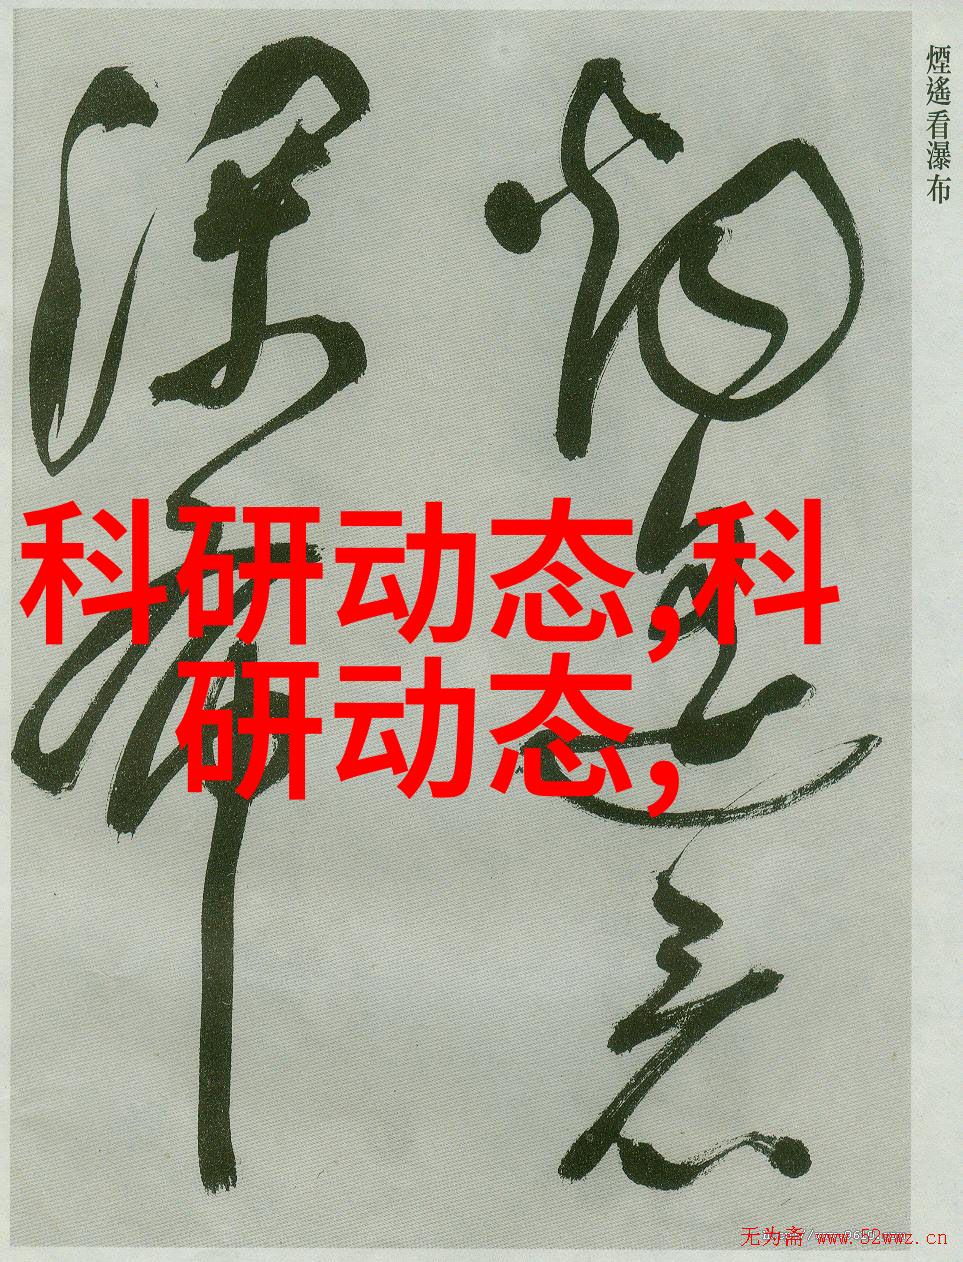 煙遙看瀑布
煙遙看
瀑布
科研动态,科
研动态,
无为斋 www.52wwz.cn